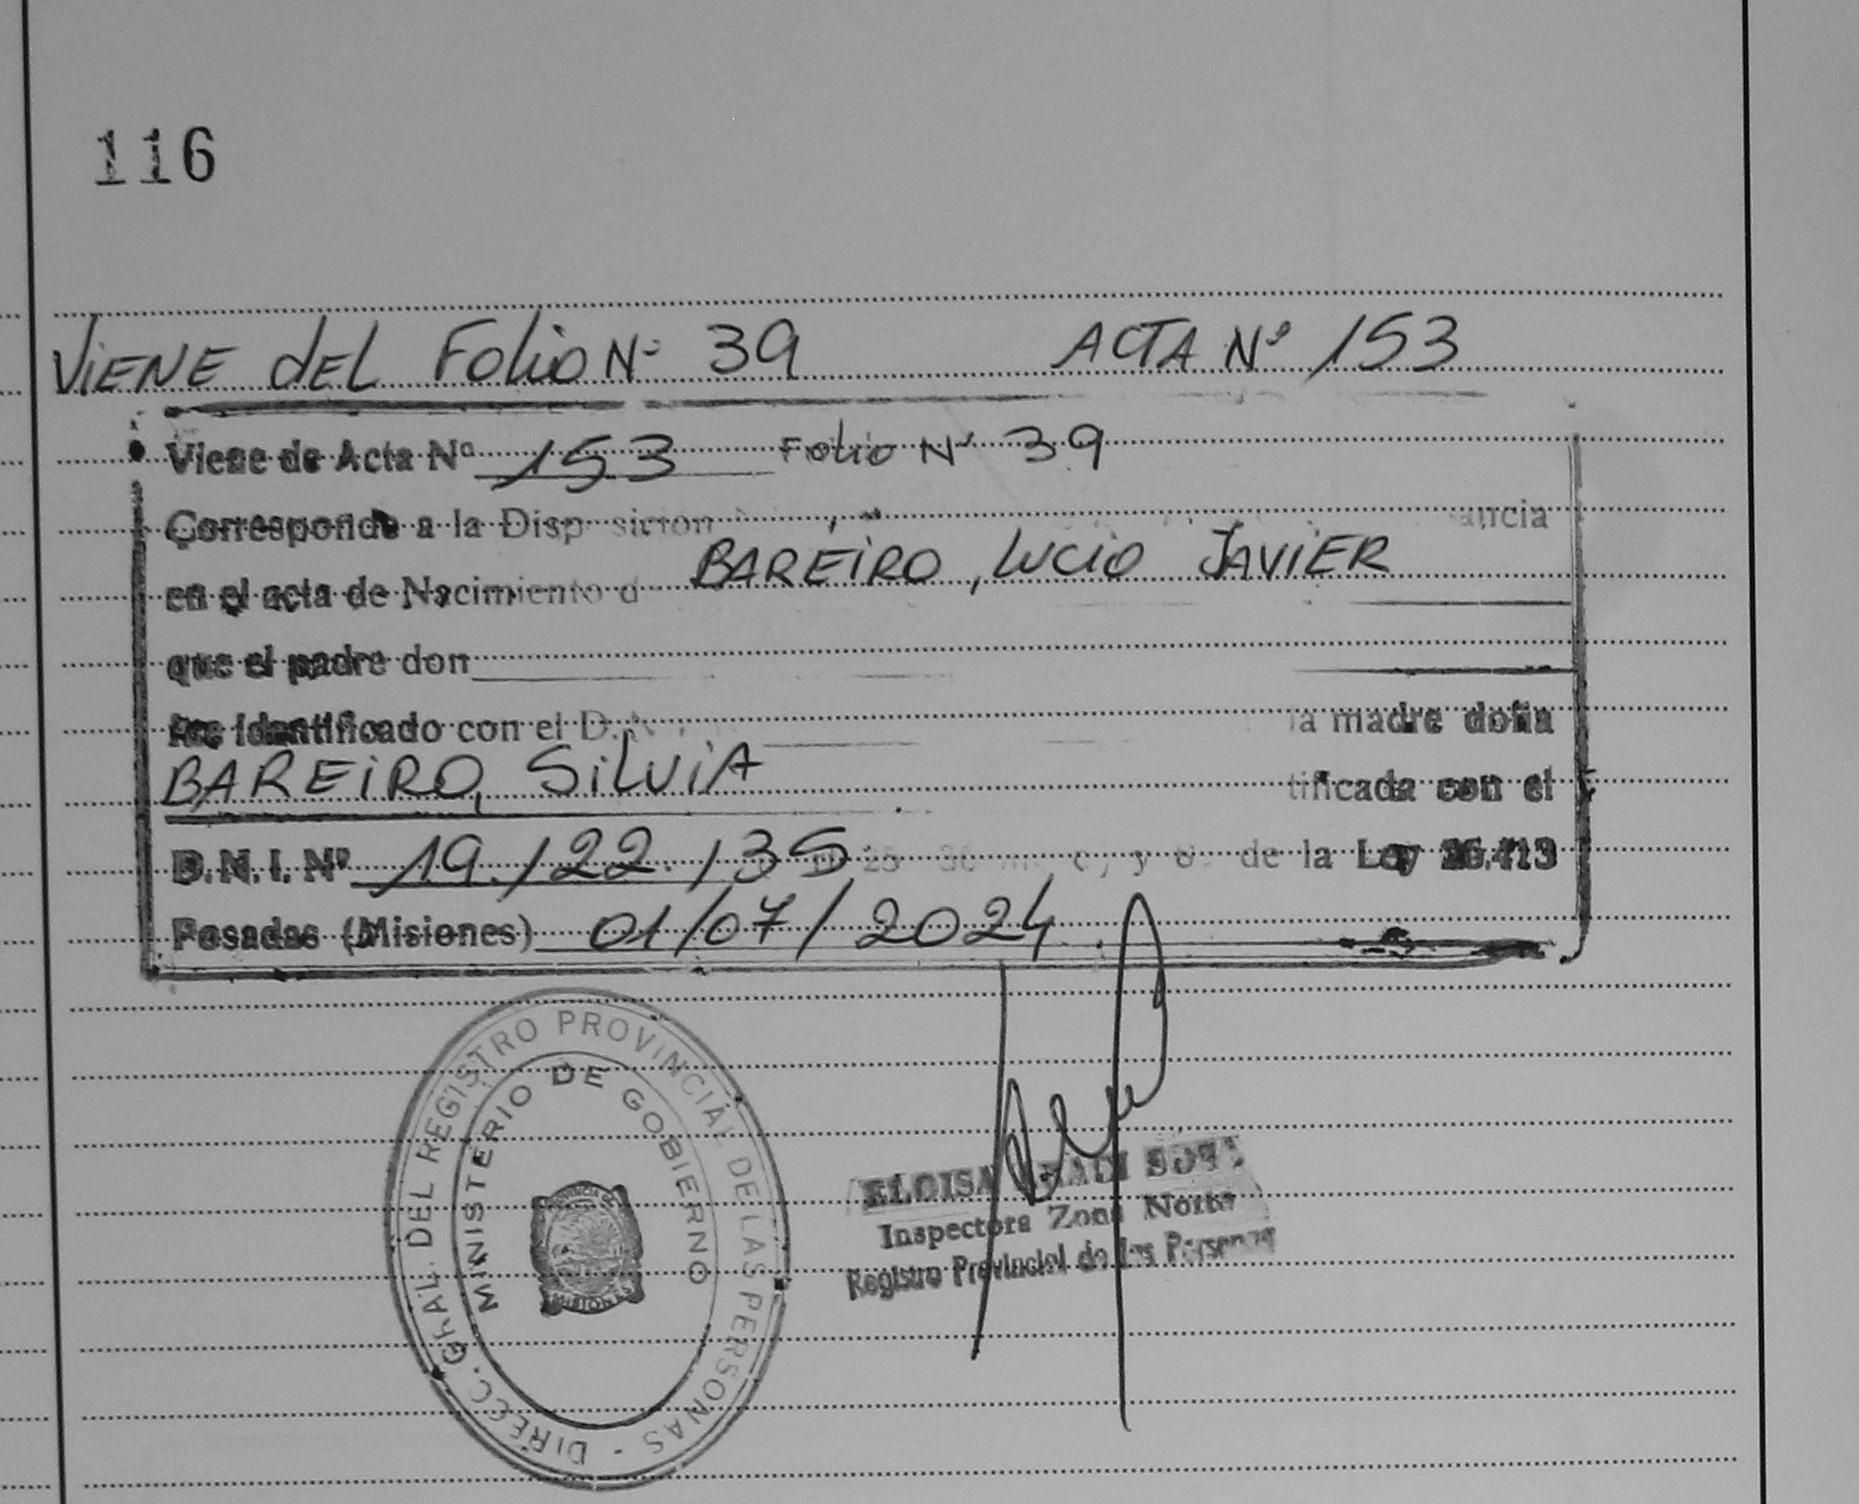 116
VIENE DEL FOLIO Nº 39 ACTA Nº 153
Viene de Acta Nº 153 Folio Nº 39
Corresponde a la Disp sicion ancia
en el acta de Nacimiento d BAREIRO, LUCIO JAVIER
que el padre don
fue identificado con el D. la madre doña
BAREIRO, SILVIA tificada con el
D.N.I. Nº 19.122.135 25 36 c) y de la Ley 26.413
Posadas (Misiones) 01/07/2024
DIRECC. GRAL. DEL REGISTRO PROVINCIAL DE LAS PERSONAS -
MINISTERIO DE GOBIERNO
PROVINCIA DE
MISIONES
ELOISA
Inspectora Zona Norte
Registro Provincial de las Personas